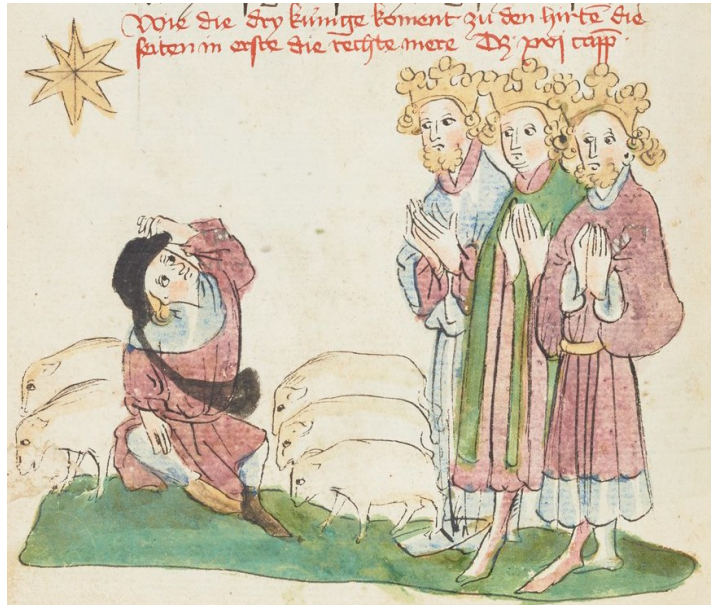 Wie die dry kunige koment zu den hirtē die
seiten in erste die rechte mere Dz xvj capp̄